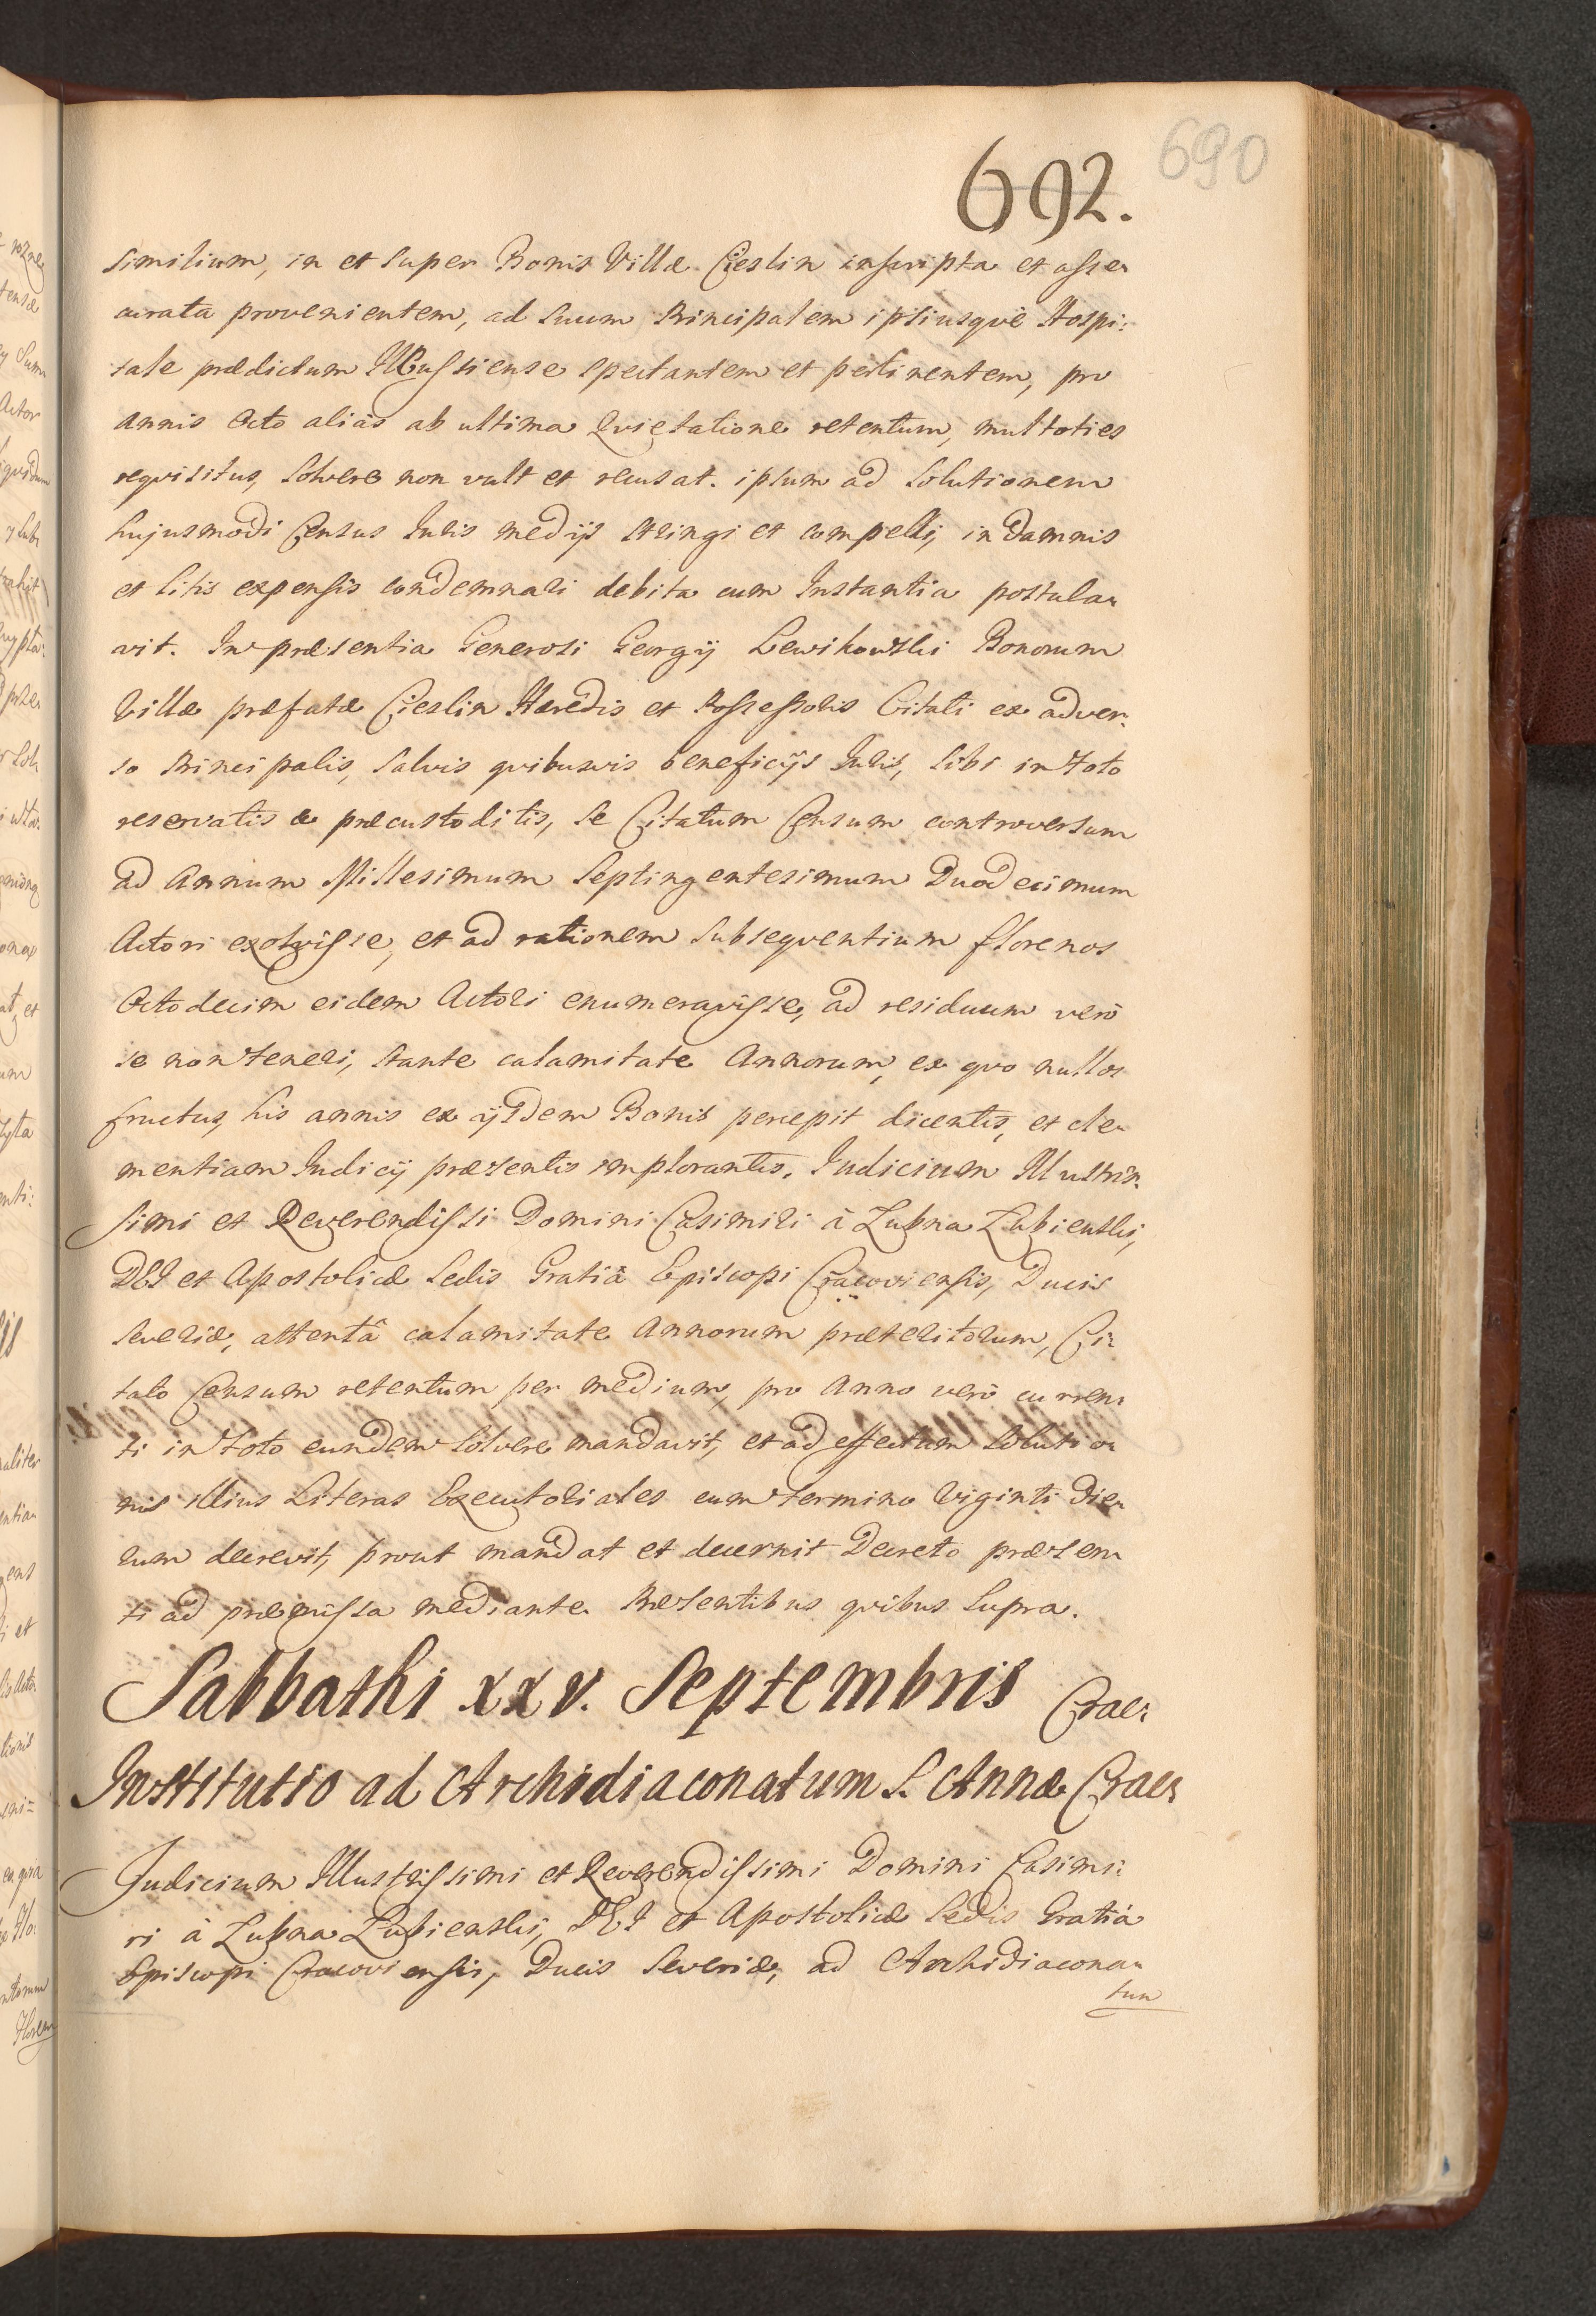 690
692.
similium, in et super Bonis Villæ Cieslin inscripta et asse-
curata provenientem, ad suum Principalem ipsiusquè Hospi:
tale prædictum Ilkussiense spectantem et pertinentem, pro
annis octo aliàs ab ultima Quietatione retentum, multoties
requisitus, solvere non vult et recusat. ipsum ad solutionem
hujusmodi Census Juris medijs stringi et compelli, in damnis
et litis expensis condemnari debita cum Instantia postula-
vit. In præsentia Generosi Georgij Lewikowski Bonorum
Villæ præfatæ Cieslin Hæredis et Possessoris Citati ex adver:
so Principalis, salvis quibusvis beneficijs Juris, sibi in toto
reservatis & præcustoditis, se Citatum Censum controversum
ad Annum Millesimum Septingentesimum Duodecimum
Actori exolvisse, et ad rationem subsequentium florenos
Octodecim eidem Actori enumeravisse, ad residuum verò
se non teneri, stante calamitate Annorum, ex quo nullos
fructus, his annis ex ijsdem Bonis percepit dicentis, et cle-
mentiam Judicij præsentis implorantis. Judicium Illustris-
simi et Reverendissi Domini Casimiri à Lubna Lubienski,
DEI et Apostolicæ Sedis Gratiâ Episcopi Cracoviensis, Ducis
Severiæ, attentâ calamitate Annorum præteritorum, Ci:
tato Censum retentum per medium, pro Anno verò curren:
ti in toto eundem solvere mandavit, et ad effectum solutio-
nis illius Literas Executoriales cum termino Viginti Die-
rum decrevit, prout mandat et decernit Decreto præsen-
ti ad præmissa mediante. Præsentibus quibus supra.
Sabbathi xxv. Septembris Crac:
Institutio ad Archidiaconatum S. Annæ Crac:
Judicium Illustrissimi et Reverendissimi Domini Casimi:
ri à Lubna Lubienski, DEI et Apostolicæ Sedis Gratiâ
Episcopi Cracoviensis, Ducis Severiæ, ad Archidiacona-
tum